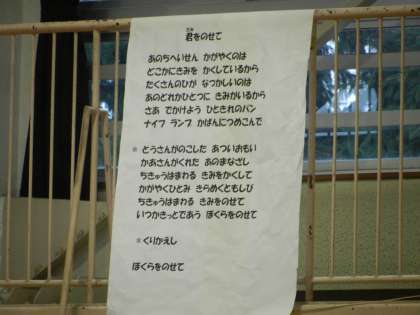 君をのせて
あのちへいせん かがやくのは
どこかにきみを かくしているから
たくさんのひが なつかしいのは
あのどれかひとつに きみがいるから
さあ でかけよう ひときれのパン
ナイフ ランプ かばんにつめこんで
※ とうさんがのこした あついおもい
かあさんがくれた あのまなざし
ちきゅうはまわる きみをかくして
かがやくひとみ きらめくともしび
ちきゅうはまわる きみをのせて
いつかきっとであう ぼくらをのせて
※くりかえし
ぼくらをのせて